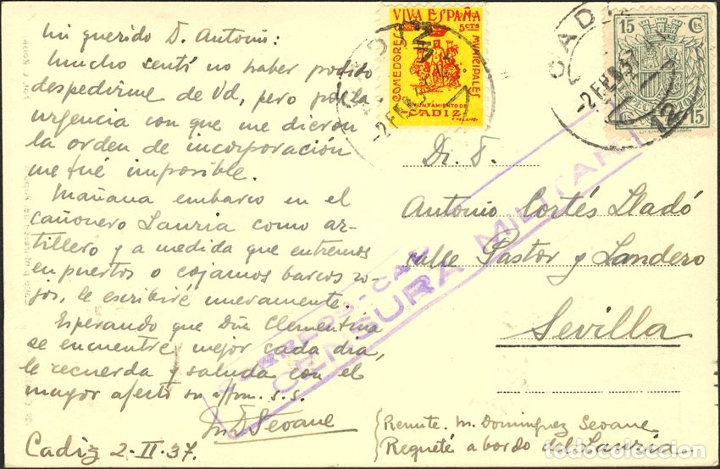 Mi querido D. Antonio:
Mucho sentí no haber podido
despedirme de Vd, pero por la
urgencia con que me dieron
la orden de incorporación
me fué imposible.
Mañana embarco en el
cañonero Lauria como ar-
tillero y a medida que entremos
en puertos o cojamos barcos ro-
jos, le escribiré nuevamente.
Esperando que Dña Clementina
se encuentre mejor cada día,
le recuerda y saluda con el
mayor afecto su affmo. s.s.
M D Seoane
Cadiz 2-II-37.
VIVA ESPAÑA
5 CTS
COMEDORES
MUNICIPALES
AYUNTAMIENTO DE
CADIZ
-2 FEB 37
CADIZ
-2 FEB 37
12
15 Cs
15
CENSURA MILITAR
Sr. D.
Antonio Cortés Lladó
calle Pastor y Landero
Sevilla
Remite. M. Dominguez Seoane
Requeté a bordo del Lauria
todocoleccion